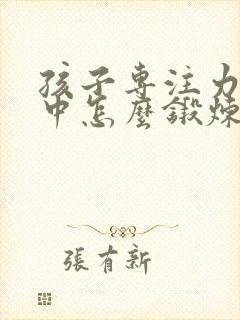 孩子專注力
中怎麼鍛煉
張有新